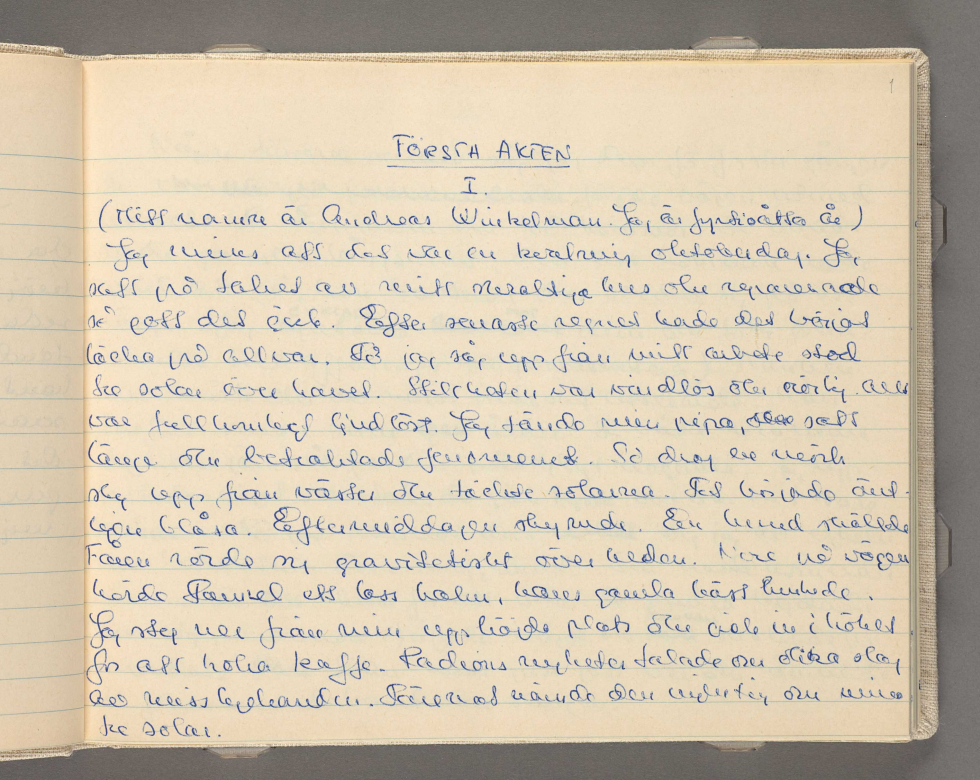 1
FÖRSTA AKTEN
I.
(Mitt namn är Andreas Winkelman. Jag är fyrtioåtta år)
Jag minns att det var en kvalmig oktoberdag. Jag
satt på taket av mitt hus och reparerade
så gott det gick. Efter senaste regnet hade det börjat
läcka på allvar. Då jag såg upp från mitt arbete stod
tre solar över havet. Stillheten var vindlös och allt
var fullkomligt ljudlöst. Jag tände min pipa, satt
länge och betraktade fenomenet. Så drog en mörk
sky upp från väster och täckte solarna. Det började änt-
ligen blåsa. Eftermiddagen skymde. En hund skällde
Fåren rörde sig gravitetiskt över heden. Nere på vägen
körde Samuel ett lass halm, hans gamla häst linkade.
Jag steg ner från min upphöjda plats och gick in i köket
för att koka kaffe. Radions nyheter talade om olika slag
av misshandel. Däremot nämnde den ingenting om mina
tre solar.